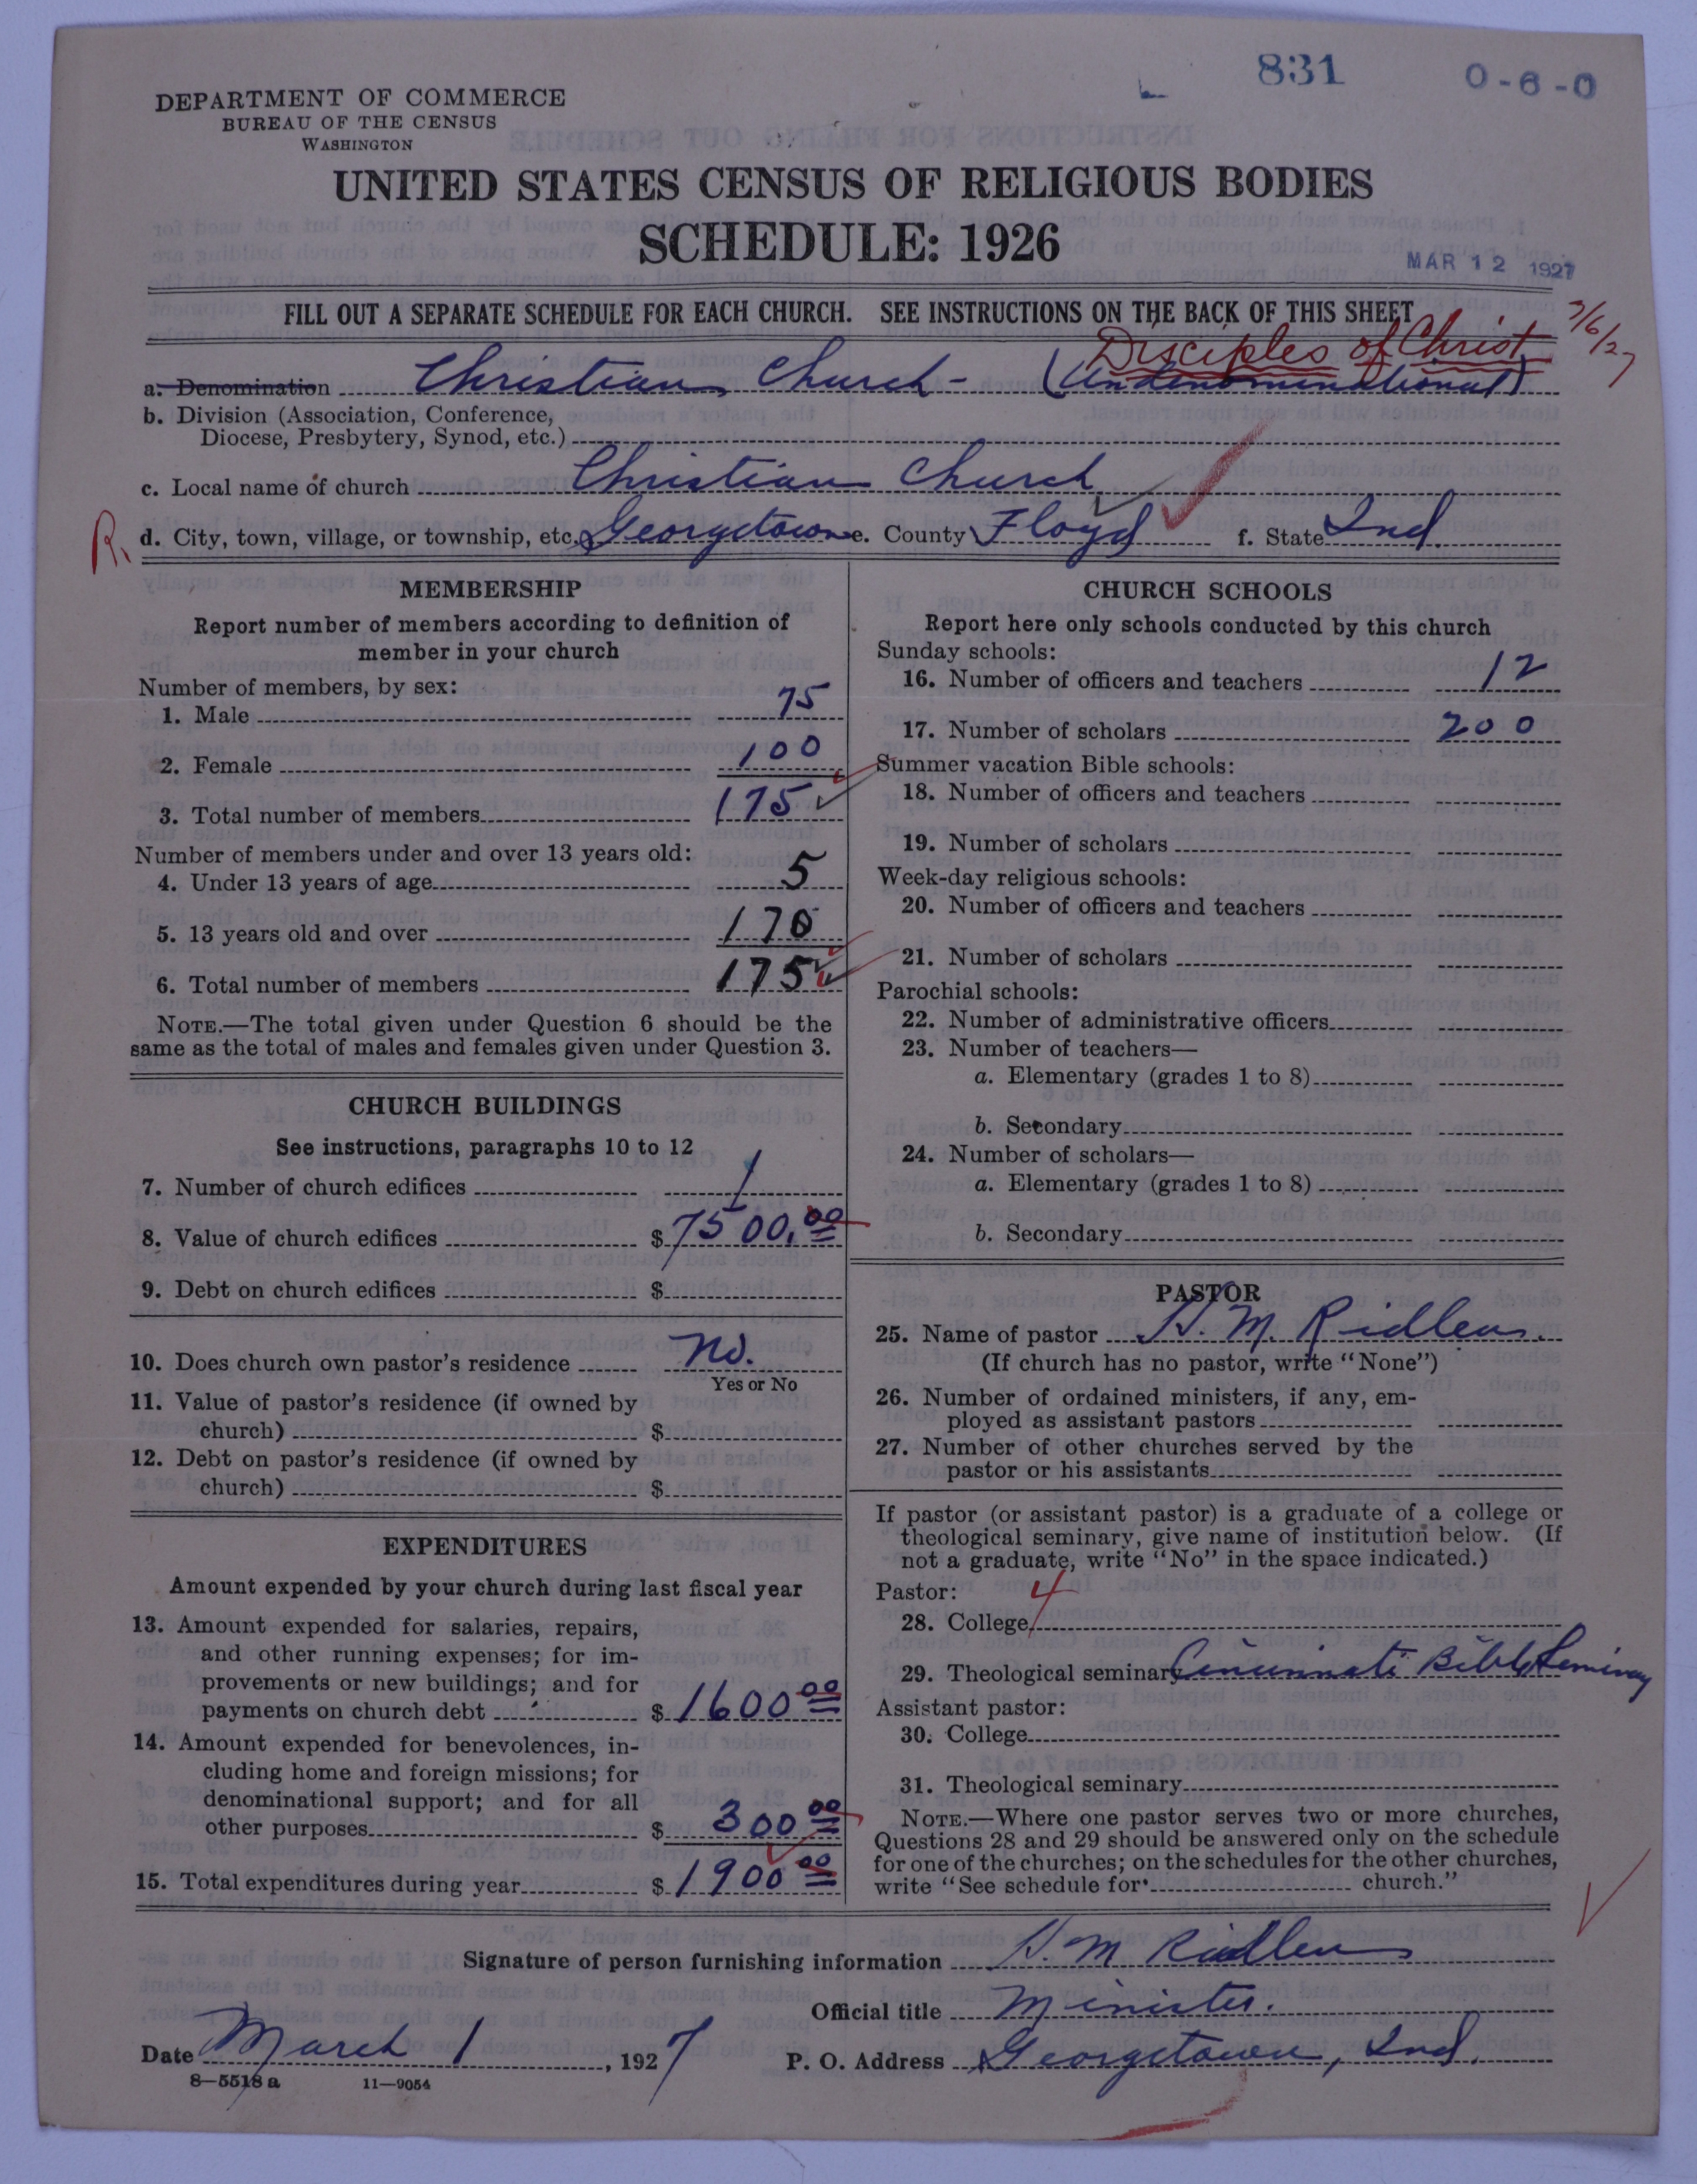 831
0-6-0
DEPARTMENT OF COMMERCE
BUREAU OF THE CENSUS
WASHINGTON
UNITED STATES CENSUS OF RELIGIOUS BODIES
SCHEDULE: 1926
MAR 12 1927
FILL OUT A SEPARATE SCHEDULE FOR EACH CHURCH. SEE INSTRUCTIONS ON THE BACK OF THIS SHEET
3/6/27
Disciples of Christ
a. Denomination Christian Church - (Undenominational)
b. Division (Association, Conference,
Diocese, Presbytery, Synod, etc.)
c. Local name of church Christian Church
R. d. City, town, village, or township, etc. Georgetown e. County Floyd f. State Ind.
MEMBERSHIP
Report number of members according to definition of
member in your church
Number of members, by sex:
1. Male 75
2. Female 100
3. Total number of members 175
Number of members under and over 13 years old:
4. Under 13 years of age 5
5. 13 years old and over 170
6. Total number of members 175
NOTE.—The total given under Question 6 should be the
same as the total of males and females given under Question 3.
CHURCH BUILDINGS
See instructions, paragraphs 10 to 12
7. Number of church edifices 1
8. Value of church edifices $ 7500.00
9. Debt on church edifices $
10. Does church own pastor's residence No.
Yes or No
11. Value of pastor's residence (if owned by
church) $
12. Debt on pastor's residence (if owned by
church) $
EXPENDITURES
Amount expended by your church during last fiscal year
13. Amount expended for salaries, repairs,
and other running expenses; for im-
provements or new buildings; and for
payments on church debt $ 1600 00
14. Amount expended for benevolences, in-
cluding home and foreign missions; for
denominational support; and for all
other purposes $ 300 00
15. Total expenditures during year $ 1900 00
CHURCH SCHOOLS
Report here only schools conducted by this church
Sunday schools:
16. Number of officers and teachers 12
17. Number of scholars 200
Summer vacation Bible schools:
18. Number of officers and teachers
19. Number of scholars
Week-day religious schools:
20. Number of officers and teachers
21. Number of scholars
Parochial schools:
22. Number of administrative officers
23. Number of teachers—
a. Elementary (grades 1 to 8)
b. Secondary
24. Number of scholars—
a. Elementary (grades 1 to 8)
b. Secondary
PASTOR
25. Name of pastor H. M. Ridlen.
(If church has no pastor, write "None")
26. Number of ordained ministers, if any, em-
ployed as assistant pastors
27. Number of other churches served by the
pastor or his assistants
If pastor (or assistant pastor) is a graduate of a college or
theological seminary, give name of institution below. (If
not a graduate, write "No" in the space indicated.)
Pastor: 4
28. College
29. Theological seminary Cincinnati Bible Seminary
Assistant pastor:
30. College
31. Theological seminary
NOTE.—Where one pastor serves two or more churches,
Questions 28 and 29 should be answered only on the schedule
for one of the churches; on the schedules for the other churches,
write "See schedule for church."
Signature of person furnishing information H. M Ridlen
Official title Minister.
Date March 1, 1927 P. O. Address Georgetown, Ind.
8—5518 a 11—9054